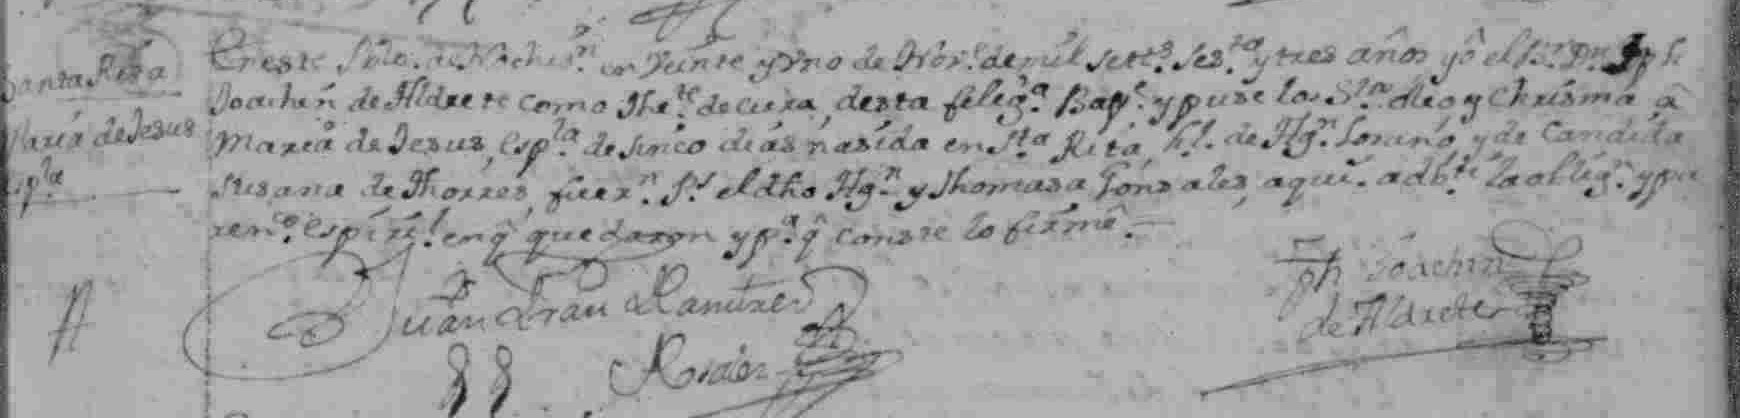 Santa Rita
Maria de Jesus
esp.la
En este Pue.o de Nochis.n en Veinte y Vno de Nov.e de mil sete.s ses.ta y tres años yô el Br. Dn. Jph
Joachin de Aldrete como The.te de cura, desta felig.a Bap.e y puse los S.tos oleo y Chrisma à
Maria de Jesus, esp.la de sinco dias nasida en S.ta Rita, h.l. de Ag.n Lorino y de Candida
Susana de Thorres, fuer.n P.s el dho Ag.n y Thomasa Gonsales, aqui.s adb.ti la oblig.n y pa
ren.co espirit.l en q̂ quedaron y p.a q̂ conste lo firmê.
Juan Fran Ramirez
Jph Joachin
de Aldrete